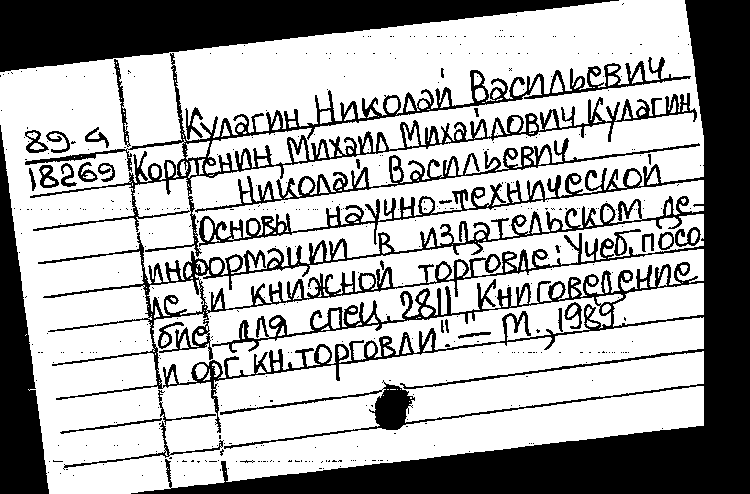 Кулагин, Николай Васильевич.
89-4
18269
Коротенин, Михаил Михайлович, Кулагин,
Николай Васильевич.
Основы научно-технической
информации в издательском де-
ле и книжной торговле: Учеб. посо-
бие для спец. 2811 "Книговедение
и орг. кн. торговли". - М., 1989.